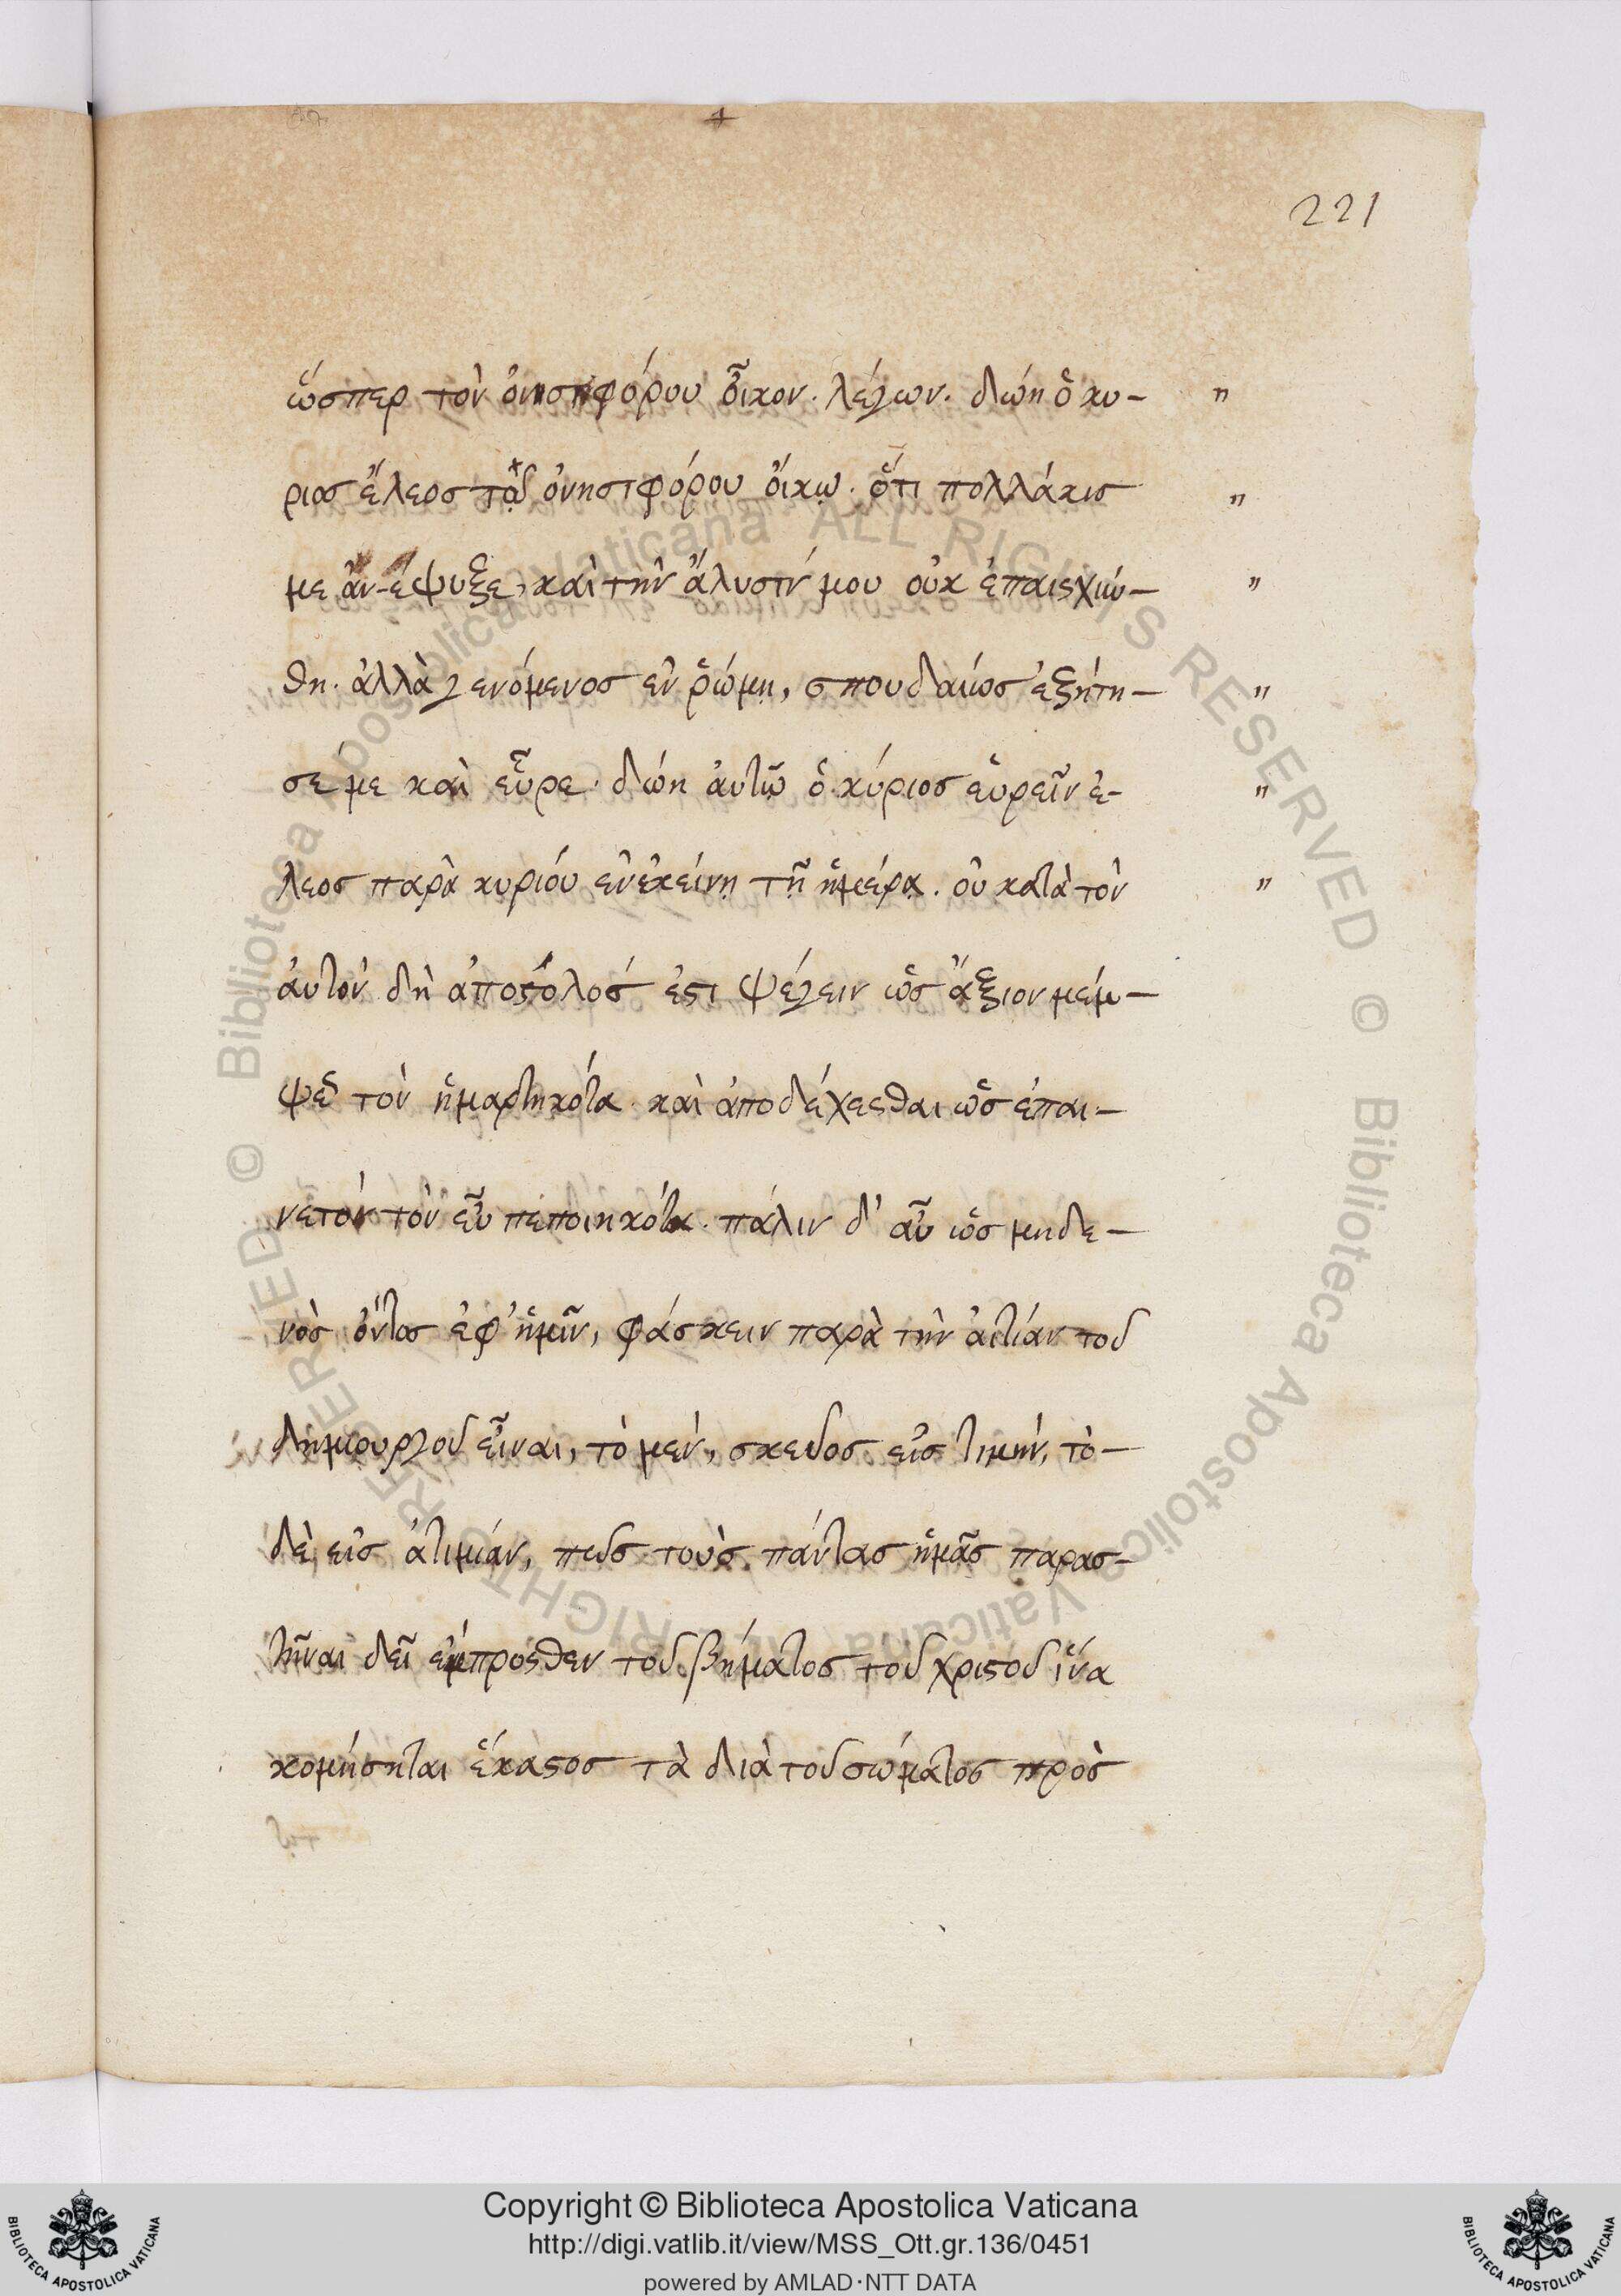 221
ὥσπερ τὸν ὀνησιφόρου οἶκον. λέγων. δώη ὁ κύ- "
ριος ἔλεος τῷ ὀνησιφόρου οἴκῳ. ὅτι πολλάκις "
με ἀν-έψυξε, καὶ τὴν ἅλυσίν μου οὐκ ἐπαισχύν- "
θη. ἀλλὰ γενόμενος ἐν ῥώμῃ, σπουδαίως ἐξήτη- "
σέ με καὶ εὗρε. δώη αὐτῷ ὁ κύριος εὑρεῖν ἔ- "
λεος παρὰ κυρίου ἐν ἐκείνῃ τῇ ἡμέρᾳ. οὐ κατὰ τὸν "
αὐτὸν δὴ ἀπόστολός ἐστι ψέγειν ὡς ἄξιον μέμ-
ψεως τὸν ἡμαρτηκότα. καὶ ἀποδέχεσθαι ὡς ἐπαι-
νετὸν τὸν εὖ πεποιηκότα. πάλιν δ' αὖ ὡς μηδε-
νὸς ὄντος ἐφ' ἡμῖν, φάσκειν παρὰ τὴν αἰτίαν τοῦ
δημιουργοῦ εἶναι, τὸ μὲν, σκεῦος εἰς τιμὴν, τὸ-
δὲ εἰς ἀτιμίαν, πως τοὺς πάντας ἡμᾶς παρασ-
τῆναι δεῖ ἔμπροσθεν τοῦ βήματος τοῦ χριστοῦ ἵνα
κομήσηται ἕκαστος τὰ διὰ τοῦ σώματος πρὸς
Copyright © Biblioteca Apostolica Vaticana
http://digi.vatlib.it/view/MSS_Ott.gr.136/0451
powered by AMLAD·NTT DATA
BIBLIOTECA APOSTOLICA VATICANA
BIBLIOTECA APOSTOLICA VATICANA
© Biblioteca Apostolica Vaticana ALL RIGHTS RESERVED © Biblioteca Apostolica Vaticana ALL RIGHTS RESERVED